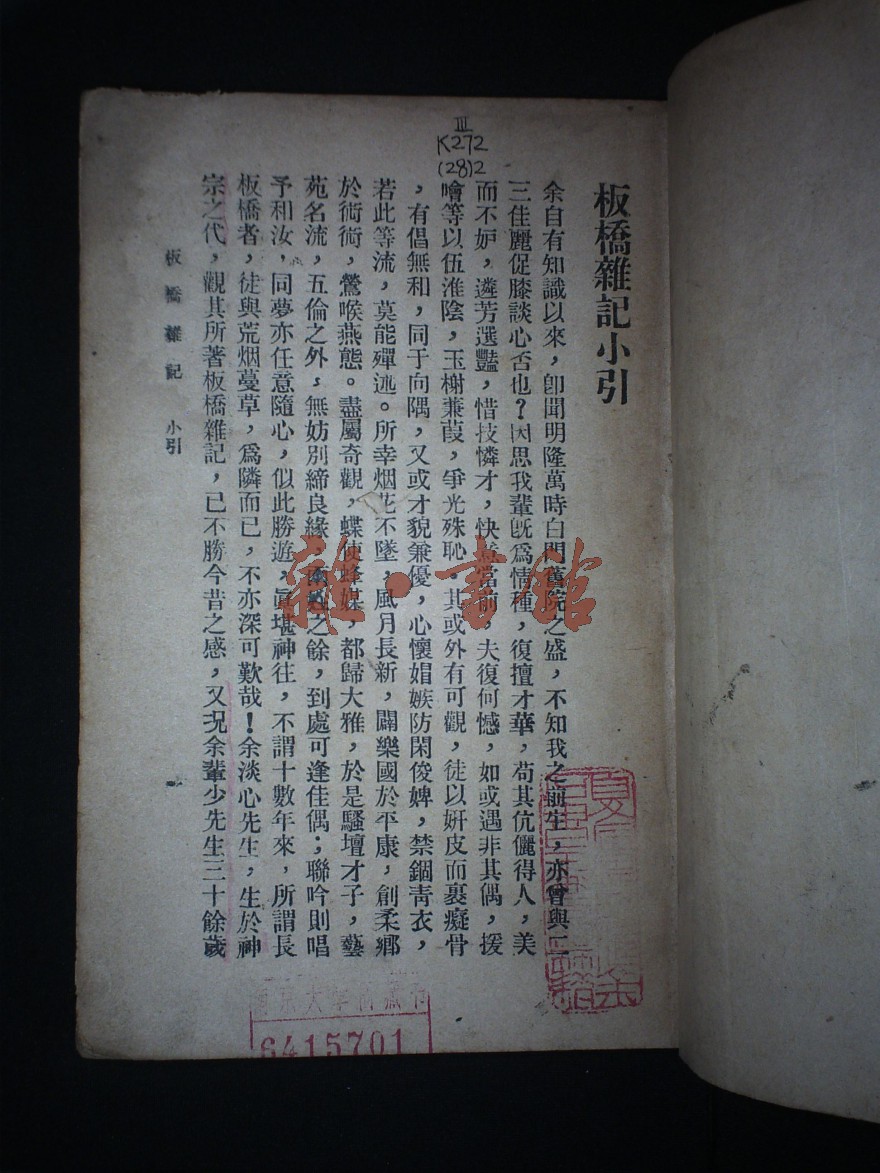 III
K272
(28)2
板橋雜記小引
余自有知識以來，卽聞明隆萬時白門舊院之盛，不知我之前生，亦曾與二
三佳麗促膝談心否也？因思我輩旣爲情種，復擅才華，苟其伉儷得人，美
而不妒，遴芳選豔，惜技憐才，快意當前，夫復何憾，如或遇非其偶，援
噲等以伍淮陰，玉樹蒹葭，爭光殊恥，其或外有可觀，徒以姸皮而裹癡骨
，有倡無和，同于向隅，又或才貌兼優，心懷媢嫉防閑俊婢，禁錮靑衣，
若此等流，莫能殫述。所幸烟花不墜，風月長新，闢樂國於平康，創柔鄉
於衖衖，鶯喉燕態。盡屬奇觀，蝶使蜂媒，都歸大雅，於是騷壇才子，藝
苑名流，五倫之外，無妨別締良緣，之餘，到處可逢佳偶；聯吟則唱
予和汝，同夢亦任意隨心，似此勝遊，眞堪神往，不謂十數年來，所謂長
板橋者，徒與荒烟蔓草，爲隣而已，不亦深可歎哉！余淡心先生，生於神
宗之代，觀其所著板橋雜記，已不勝今昔之感，又况余輩少先生三十餘歲
板橋雜記 小引
雜·書館
6415701